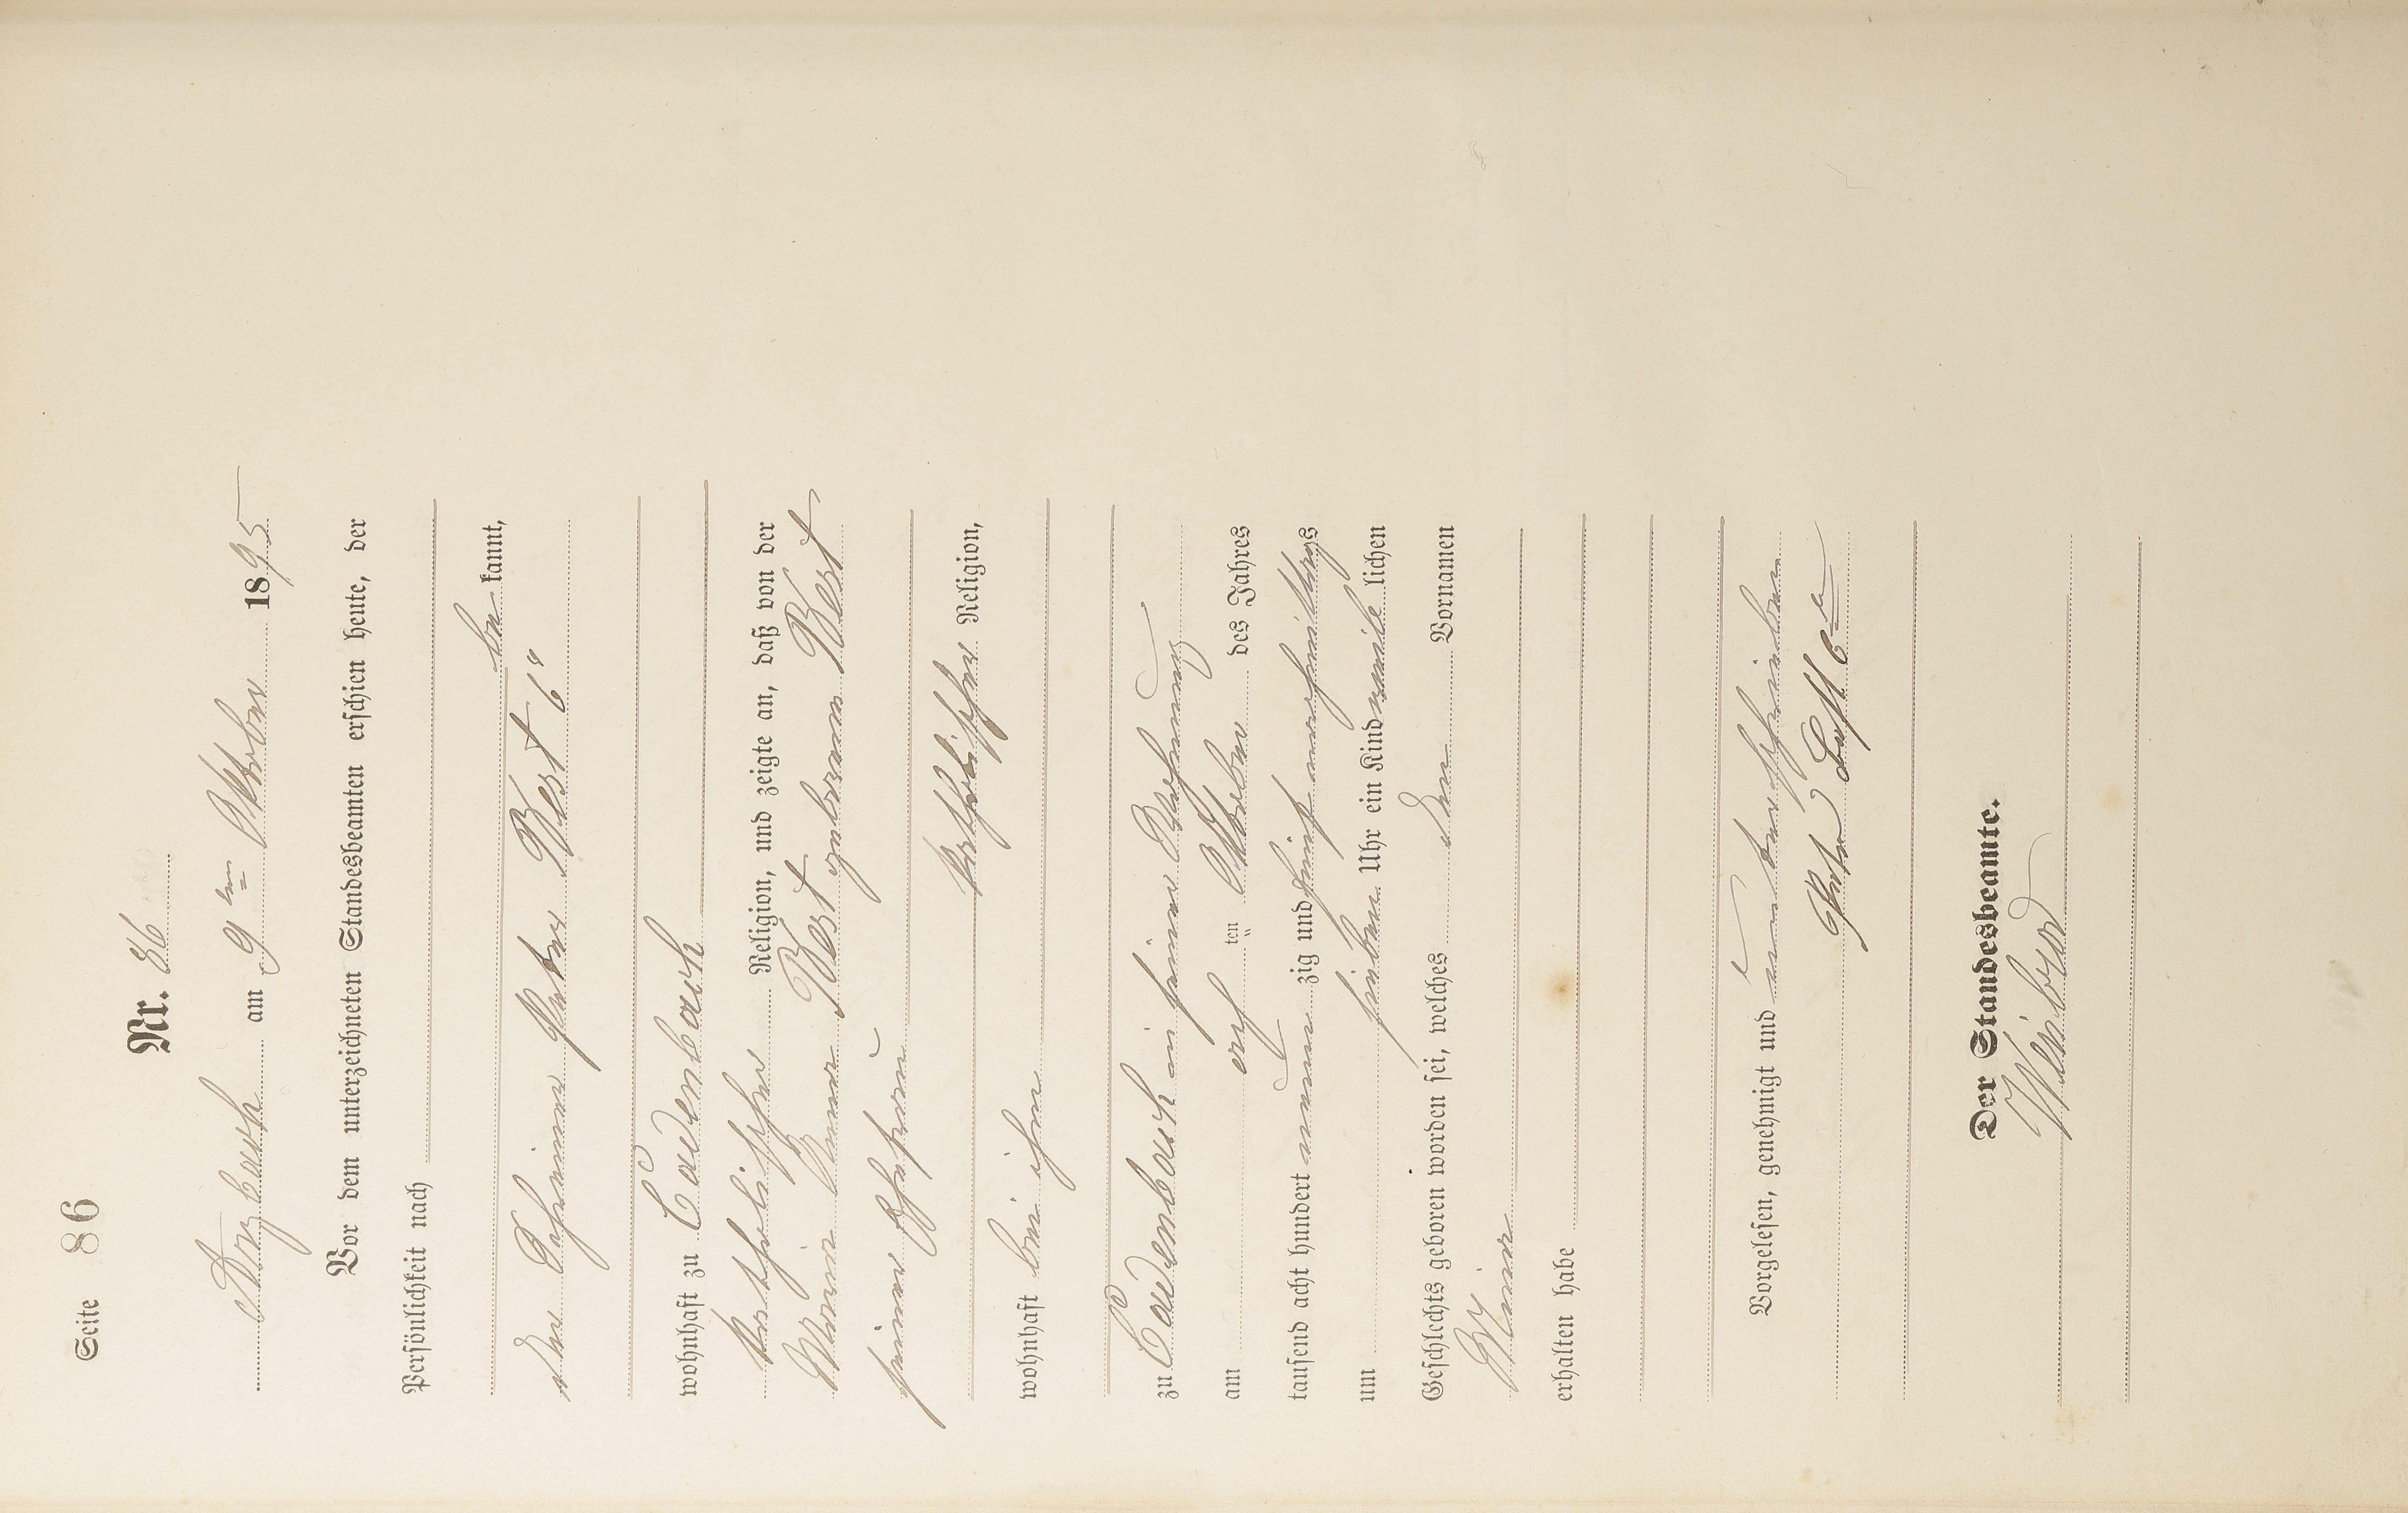 Seite 86
Nr. 86
Arzbach am 9ten Oktober 1895
Vor dem unterzeichneten Standesbeamten erschien heute, der
Persönlichkeit nach
be kannt,
der Schreiner Peter Best 6r
wohnhaft zu Cadenbach
katholischer Religion, und zeigte an, daß von der
Maria Anna Best geborene Best
seiner Ehefrau
katholischer Religion,
wohnhaft bei ihm
zu Cadenbach in seiner Wohnung
am acht ten Oktober des Jahres
tausend acht hundert neun zig und fünf nachmittags
um sieben Uhr ein Kind lichen
Geschlechts geboren worden sei, welches den Vornamen
erhalten habe
Vorgelesen, genehmigt und unterschrieben
Peter Best 6ter
Der Standesbeamte.
Weibrod